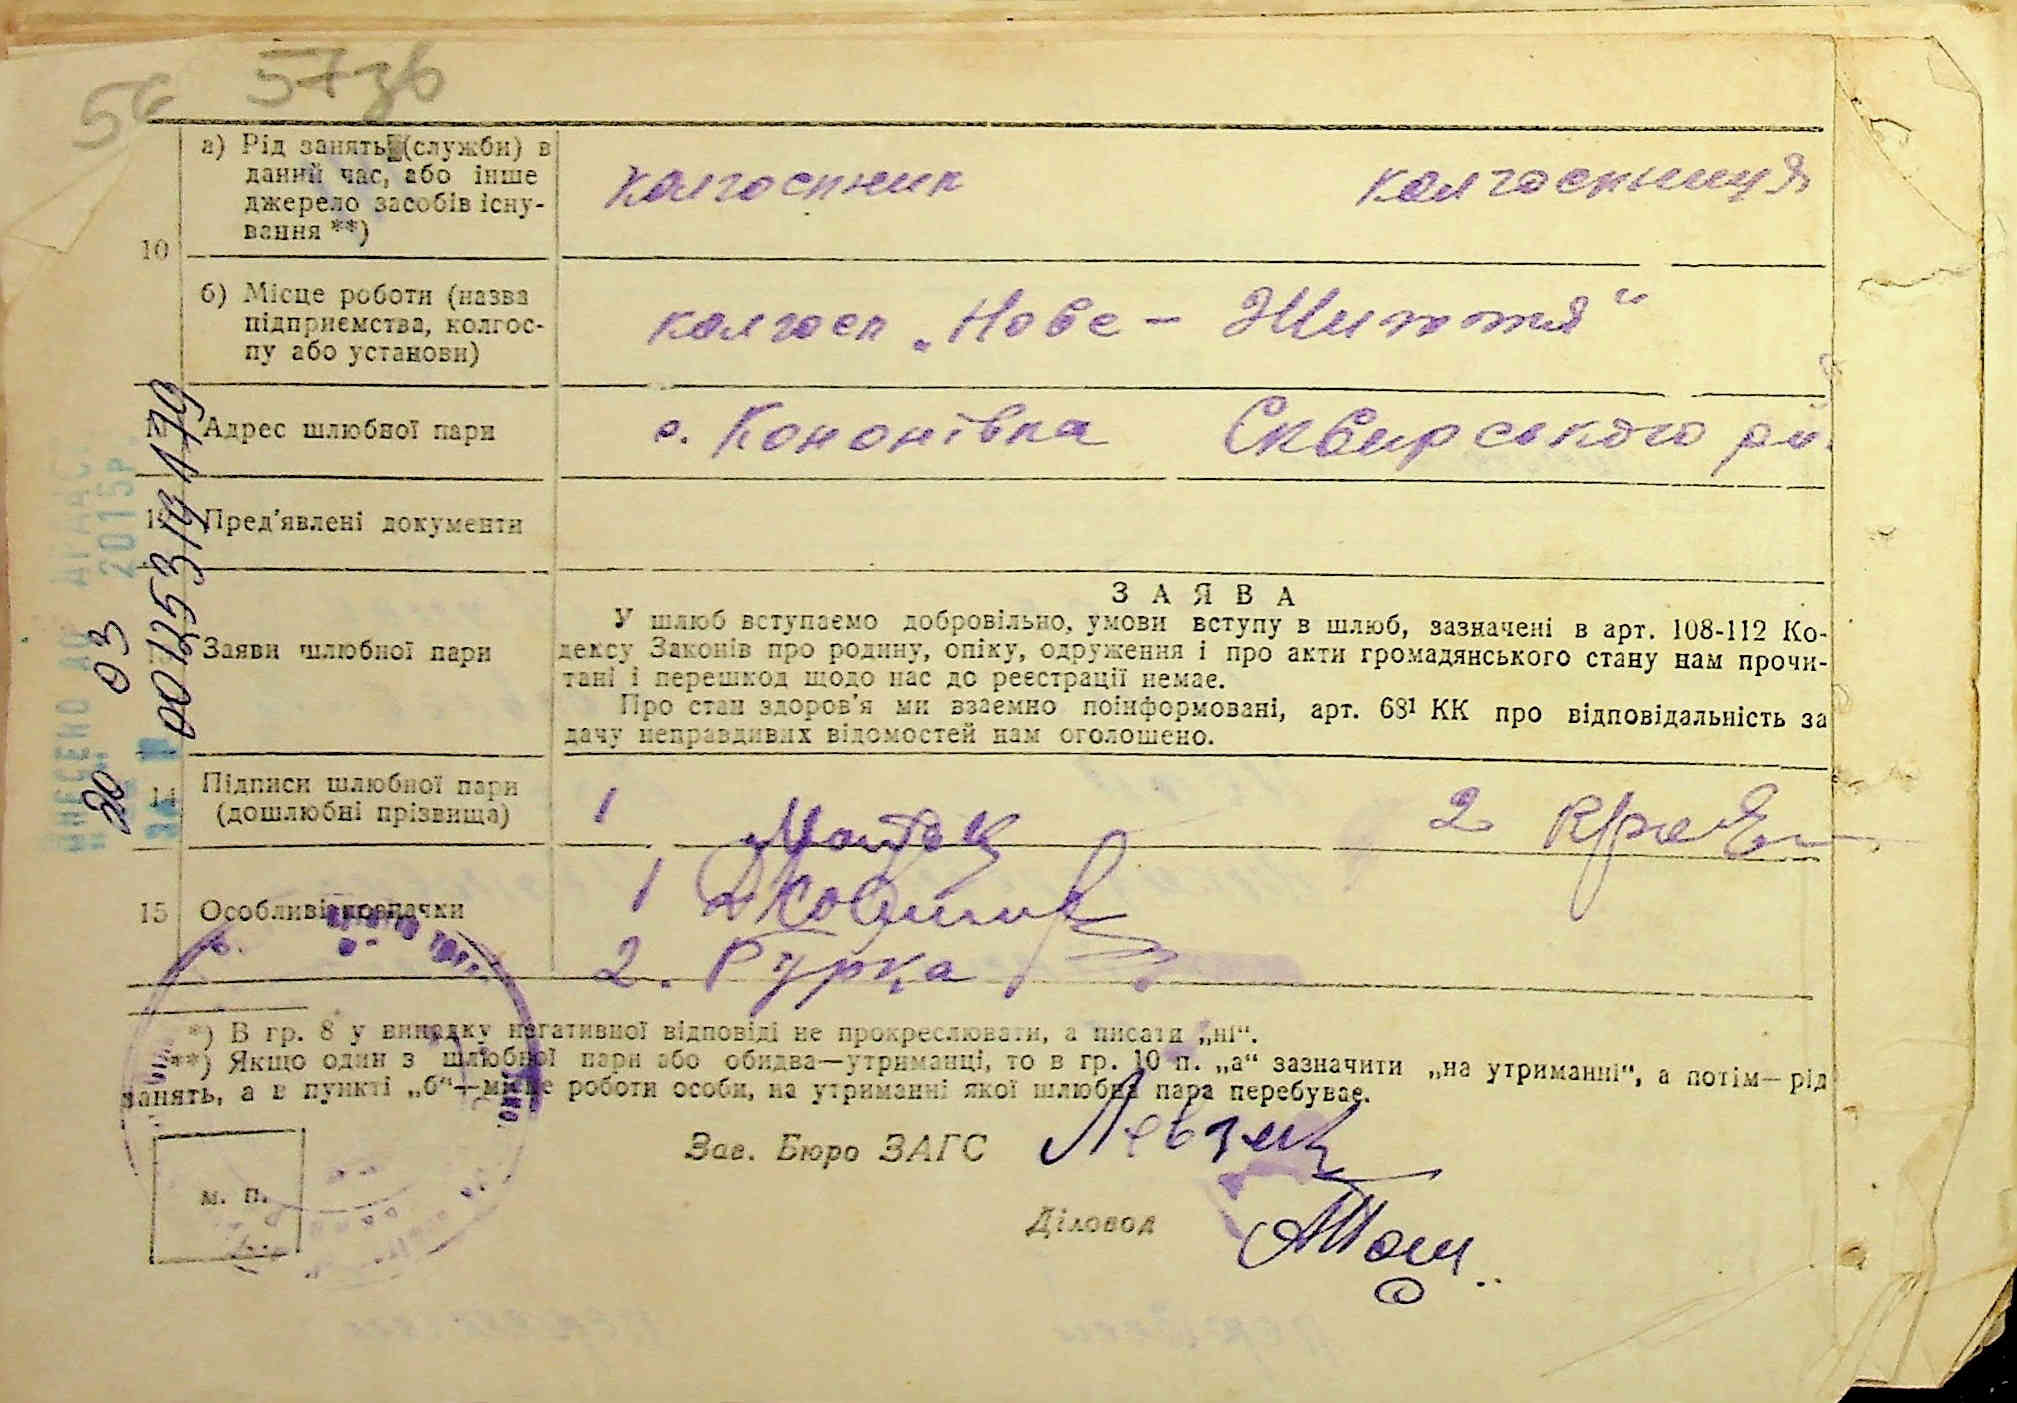 57зв
56
а) Рід занять (служби) в
данний час, або інше
джерело засобів існу-
вання **)
колгоспник колгоспниця
10
б) Місце роботи (назва
підприємства, колгос-
пу або установи)
колгосп „Нове - Життя“
Адрес шлюбної пари
с. Кононівка Сквирського р-н.
Пред'явлені документи
Заяви шлюбної пари
ЗАЯВА
У шлюб вступаємо добровільно, умови вступу в шлюб, зазначені в арт. 108-112 Ко-
дексу Законів про родину, опіку, одруження і про акти громадянського стану нам прочи-
тані і перешкод щодо нас до реєстрації немає.
Про стан здоров'я ми взаємно поінформовані, арт. 68¹ КК про відповідальність за
дачу неправдивих відомостей нам оголошено.
14 Підписи шлюбної пари
(дошлюбні прізвища)
1 2
15 Особливі позначки
1
2. Гурка
*) В гр. 8 у випадку негативної відповіді не прокреслювати, а писати „ні“.
**) Якщо один з шлюбної пари або обидва—утриманці, то в гр. 10 п. „а“ зазначити „на утриманні“, а потім—рід
занять, а в пункті „б“—місце роботи особи, на утриманні якої шлюбна пара перебуває.
Зав. Бюро ЗАГС
Діловод
м. п.
ВНЕСЕНО ДО ДРАЦС
20 03 2015р.
00125319479